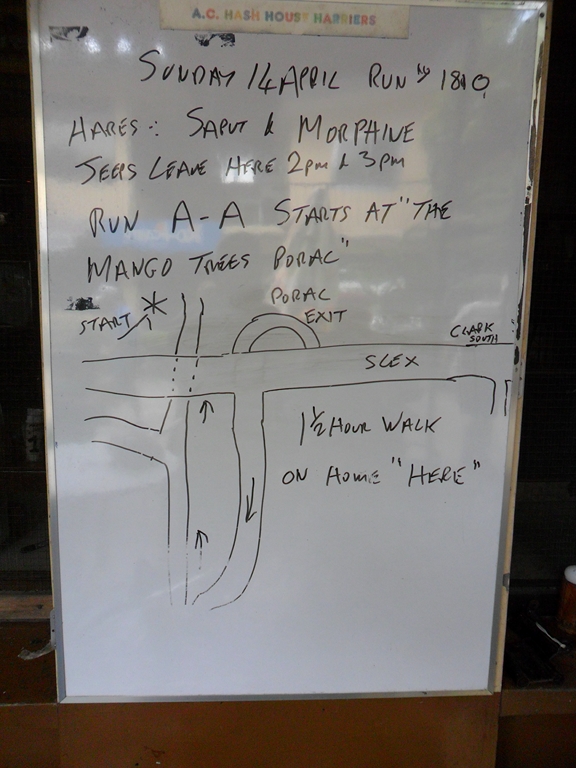 A.C. HASH HOUSE HARRIERS
SUNDAY 14 APRIL RUN No 1810
HARES: SAPUT & MORPHINE
JEEPS LEAVE HERE 2pm & 3pm
RUN A-A STARTS AT "THE
MANGO TREES PORAC"
START
PORAC
EXIT
CLARK
SOUTH
SCEX
1½ HOUR WALK
ON HOME "HERE"